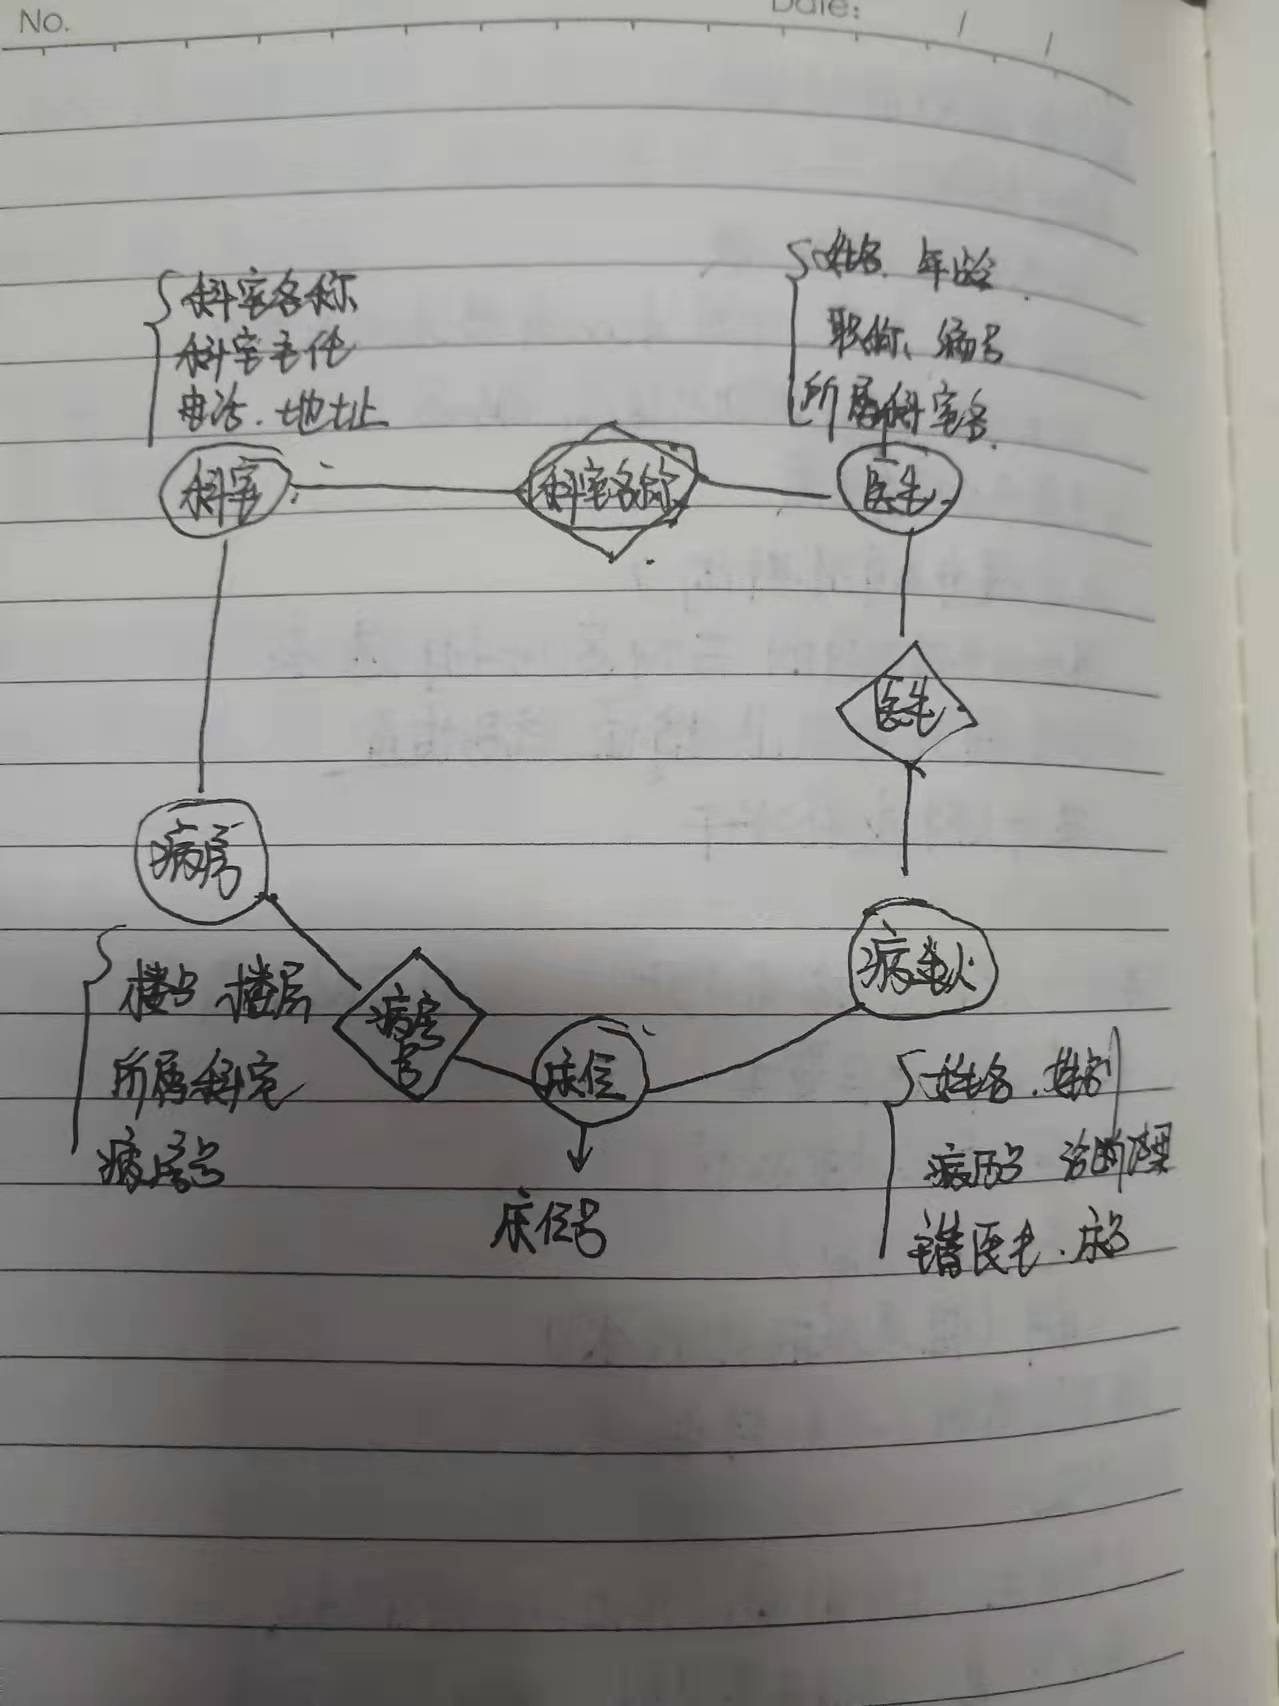 No.
Date:
科室名称
科室主任
电话、地址
姓名、年龄
职称、编号
所属科室名
科室
科室名称
医生
医生
病房
楼号 楼层
所属科室
病房号
病房号
床位
床位号
病人
姓名、性别
病历号 诊断结果
主管医生、床号